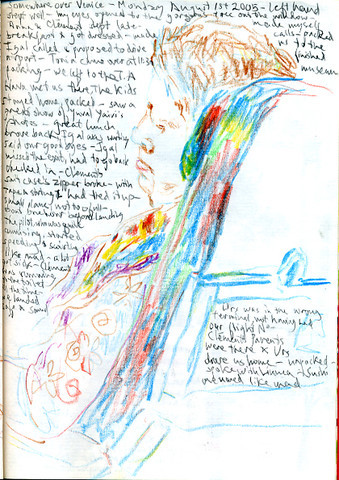 Somewhere over Venice - Monday August 1st 2005 - left hand
slept well - my eyes opened to the gorgeous face on the window
Anna & Clement slept late - made myself
breakfast & got dressed - made calls - packed
Igal called & proposed to drive us to the
airport - Tomi came over at 11:30 finished
parking - we left to the T.A museum
Hana met us there The kids
stayed home, packed - saw a
great show of Yuval Yairi's
photos - great lunch
drove back Igal was waiting
said our goodbyes - Igal
missed the exit, had to go back
checked in - Clement's
suitcase's zipper broke - with
tape & string I had tied it up
small plane, not too full -
about one hour before landing
the pilot
started
speeding &
like mad - a bit
Clement
was
to toilet
by the time
we landed
safe & sound
Urs was in the wrong
terminal not having had
our flight No -
Clement's parents
were there & Urs
drove us home - unpacked -
spoke with Linnea - Sushi
meowed like mad